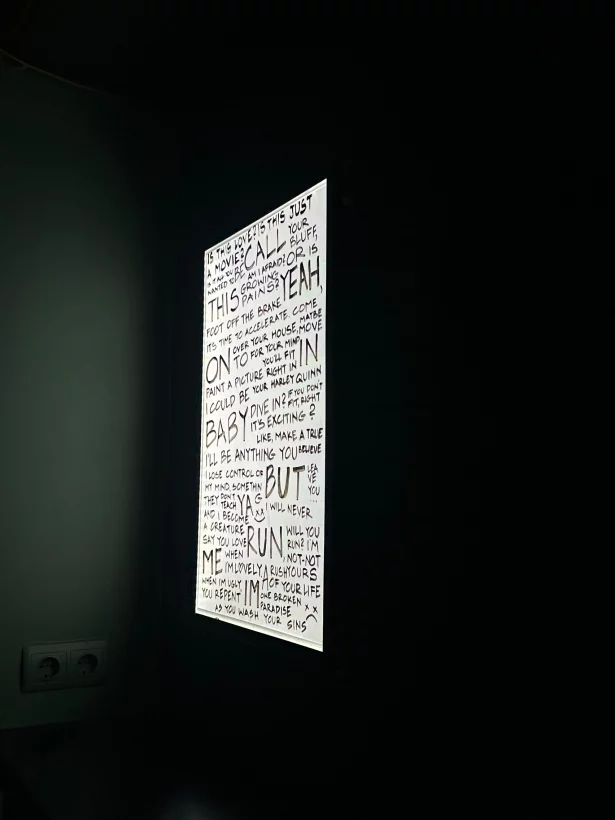 IS THIS LOVE? IS THIS JUST
A MOVIE? CALL YOUR BLUFF,
IT ALL YOU WANTED TO BE AM I AFRAID? OR IS
THIS GROWING PAINS? YEAH,
FOOT OFF THE BRAKE
IT'S TIME TO ACCELERATE. COME
ON OVER YOUR HOUSE, MAYBE MOVE
TO FOR YOUR MIND YOU'LL FIT
PAINT A PICTURE RIGHT IN IN
I COULD BE YOUR HARLEY QUINN
BABY DIVE IN? IF YOU DON'T FIT, RIGHT
IT'S EXCITING?
LIKE, MAKE A TRUE
I'LL BE ANYTHING YOU BELIEVE
I LOSE CONTROL OF BUT LEAVE YOU...
MY MIND, SOMETHIN
THEY DON'T TEACH YA
AND I BECOME I WILL NEVER
A CREATURE RUN WILL YOU RUN? I'M
SAY YOU LOVE NOT-NOT
ME WHEN I'M LOVELY, A RUSH YOURS
WHEN I'M UGLY OF YOUR LIFE
YOU REPENT I'M ONE BROKEN PARADISE
AS YOU WASH YOUR SINS